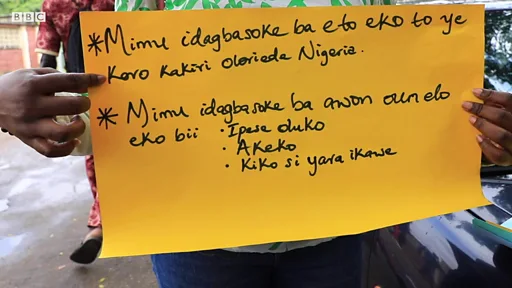 BBC
*Mimu idagbasoke ba eto eko to ye
Koro kakiri olorieda Nigeria.
* Mimu idagbasoke ba awon oun elo
eko bii • Ipese oluko
• Akeko
• Kiko si yara ikawe